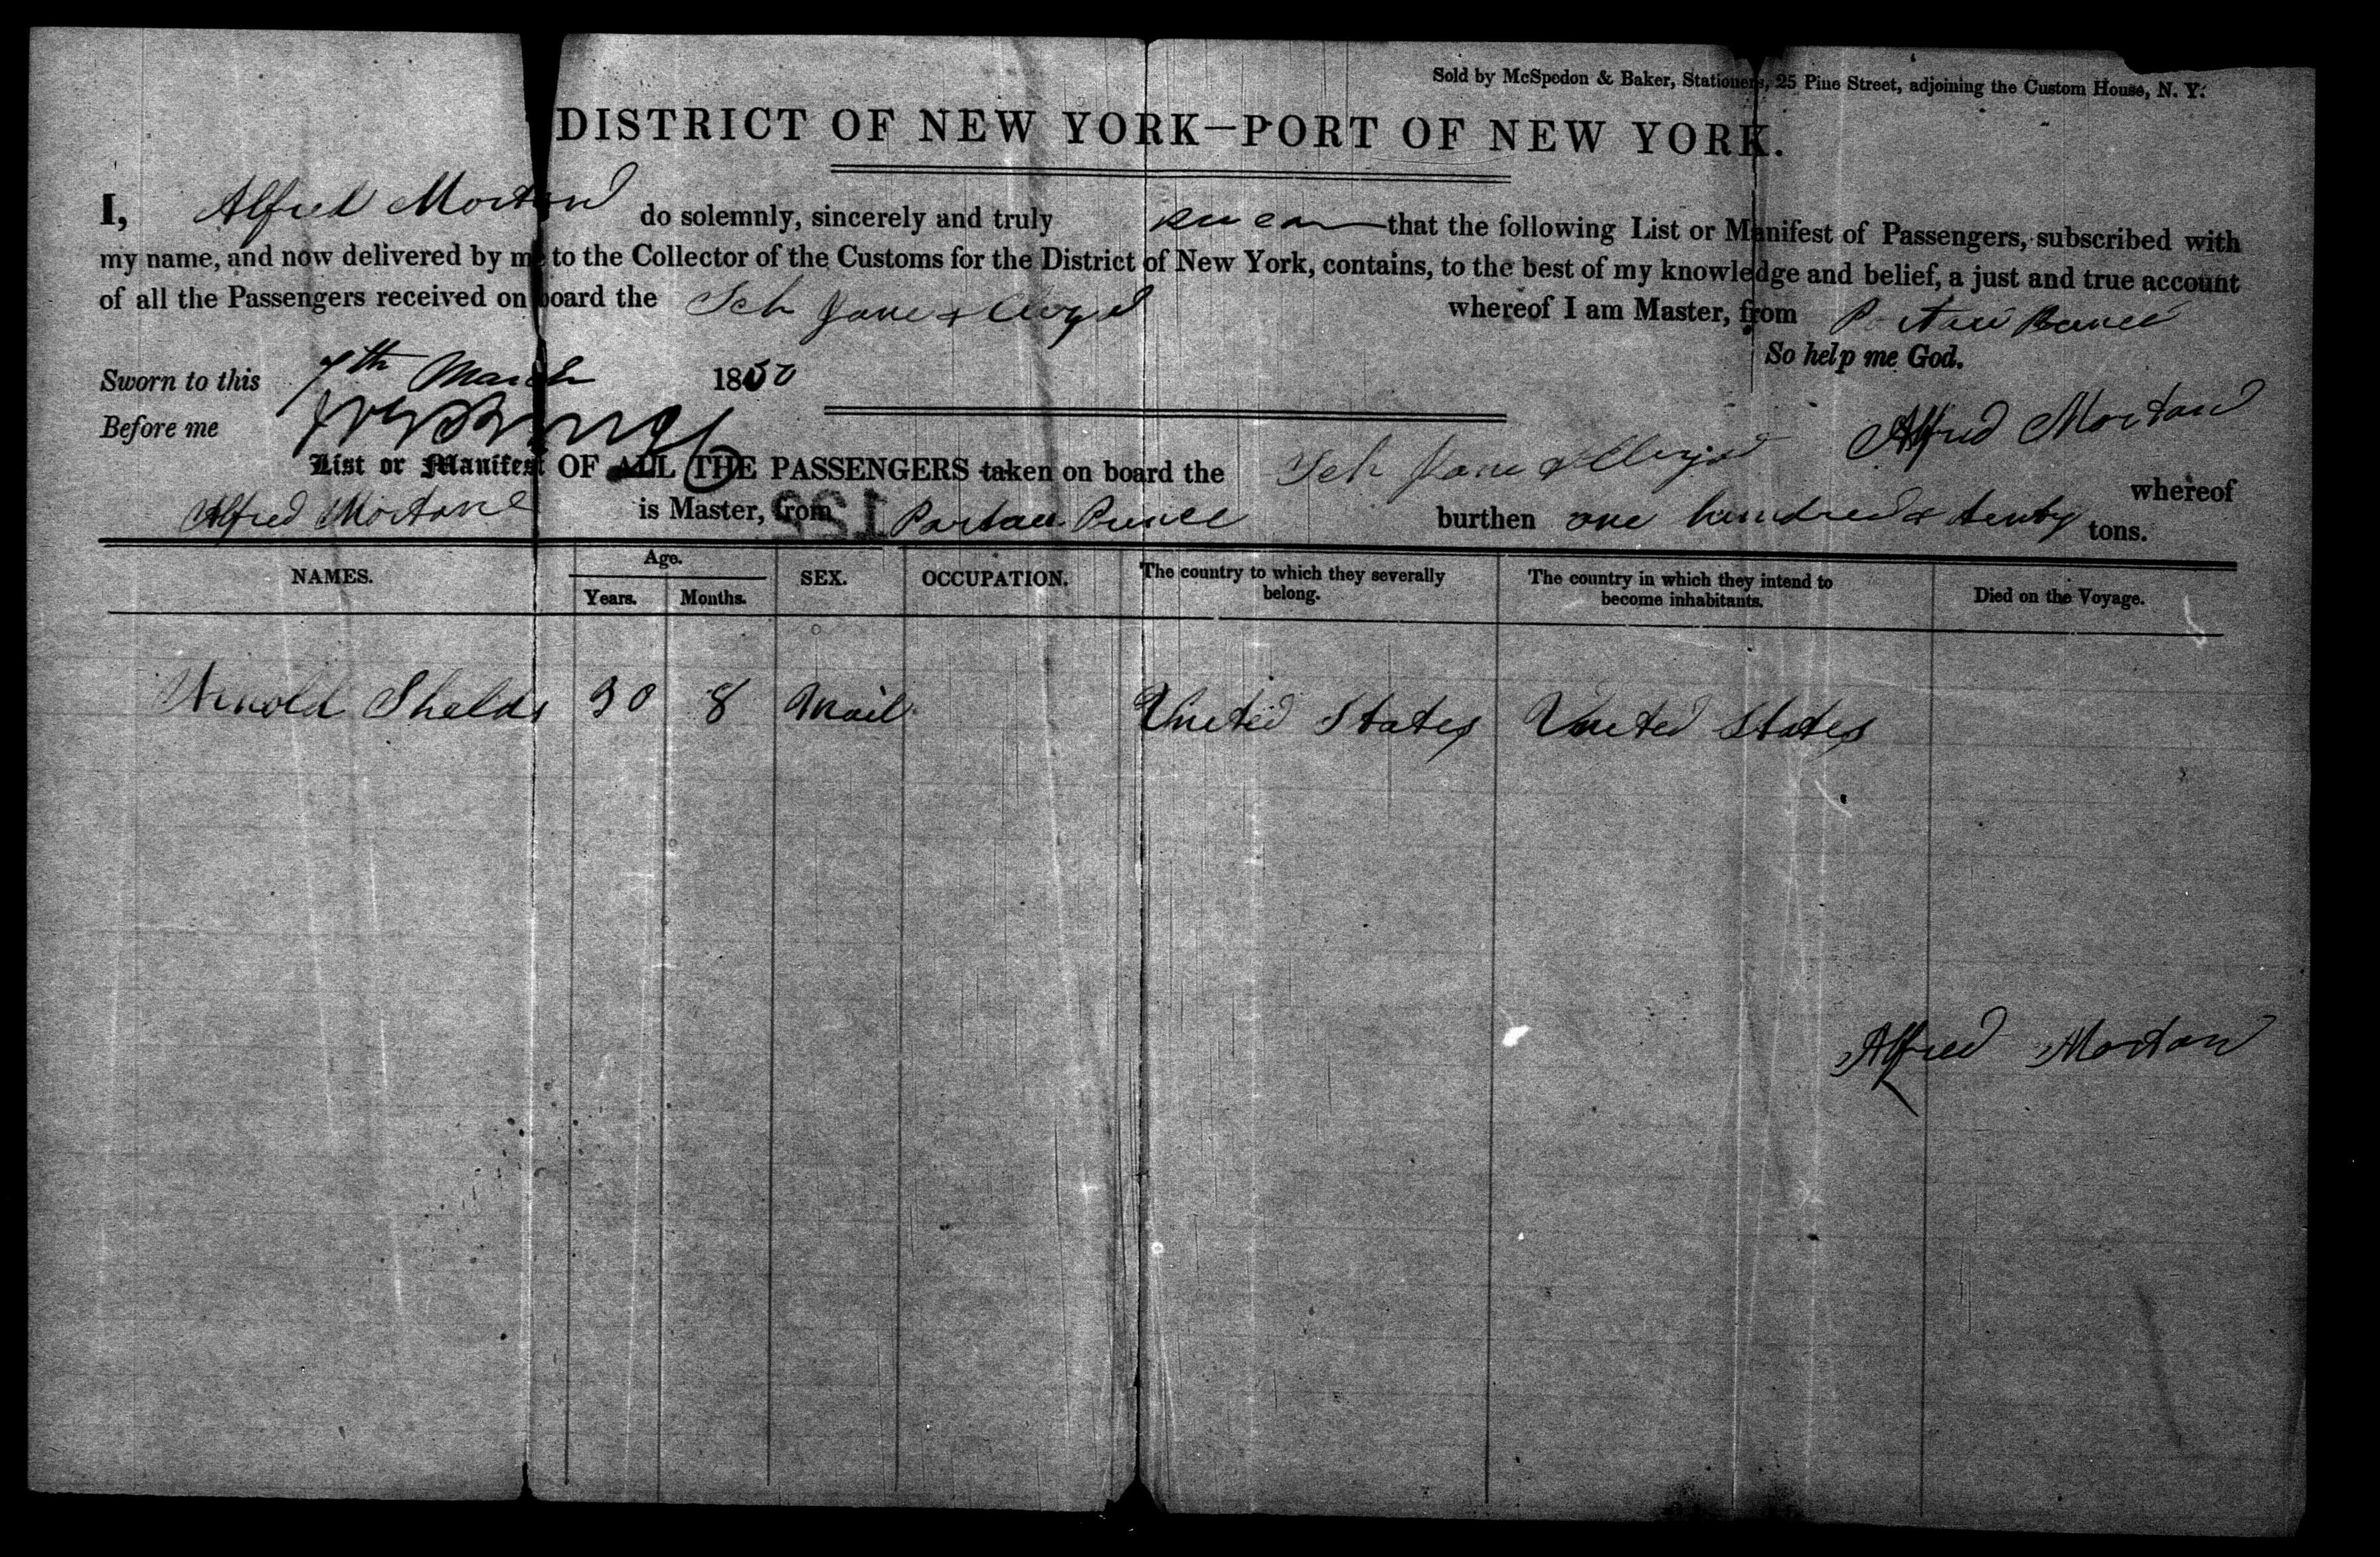 Sold by McSpedon & Baker, Stationers, 25 Pine Street, adjoining the Custom House, N. Y.
DISTRICT OF NEW YORK—PORT OF NEW YORK.
I, Alfred Morton do solemnly, sincerely and truly that the following List or Manifest of Passengers, subscribed with
my name, and now delivered by me to the Collector of the Customs for the District of New York, contains, to the best of my knowledge and belief, a just and true account
of all the Passengers received on board the Sch Jane & whereof I am Master, from
So help me God.
Sworn to this 7th March 1850
Before me
Alfred Morton
List or Manifest OF ALL THE PASSENGERS taken on board the Sch Jane & whereof
Alfred Morton is Master, from Portau Prince burthen one hundred & tons.
NAMES. Age. Years. Months. SEX. OCCUPATION. The country to which they severally belong. The country in which they intend to become inhabitants. Died on the Voyage.
Arnold Shelds 30 8 Mail United States United States
Alfred Morton